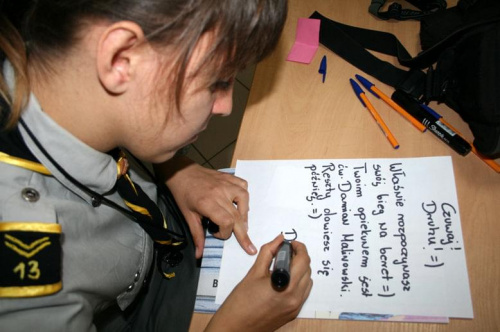 Czuwaj!
Druhu! =)
Właśnie rozpoczynasz
swój bieg na beret =)
Twoim opiekunem jest
ćw. Damian Malinowski.
Reszty dowiesz się
później. =)
D
13
B